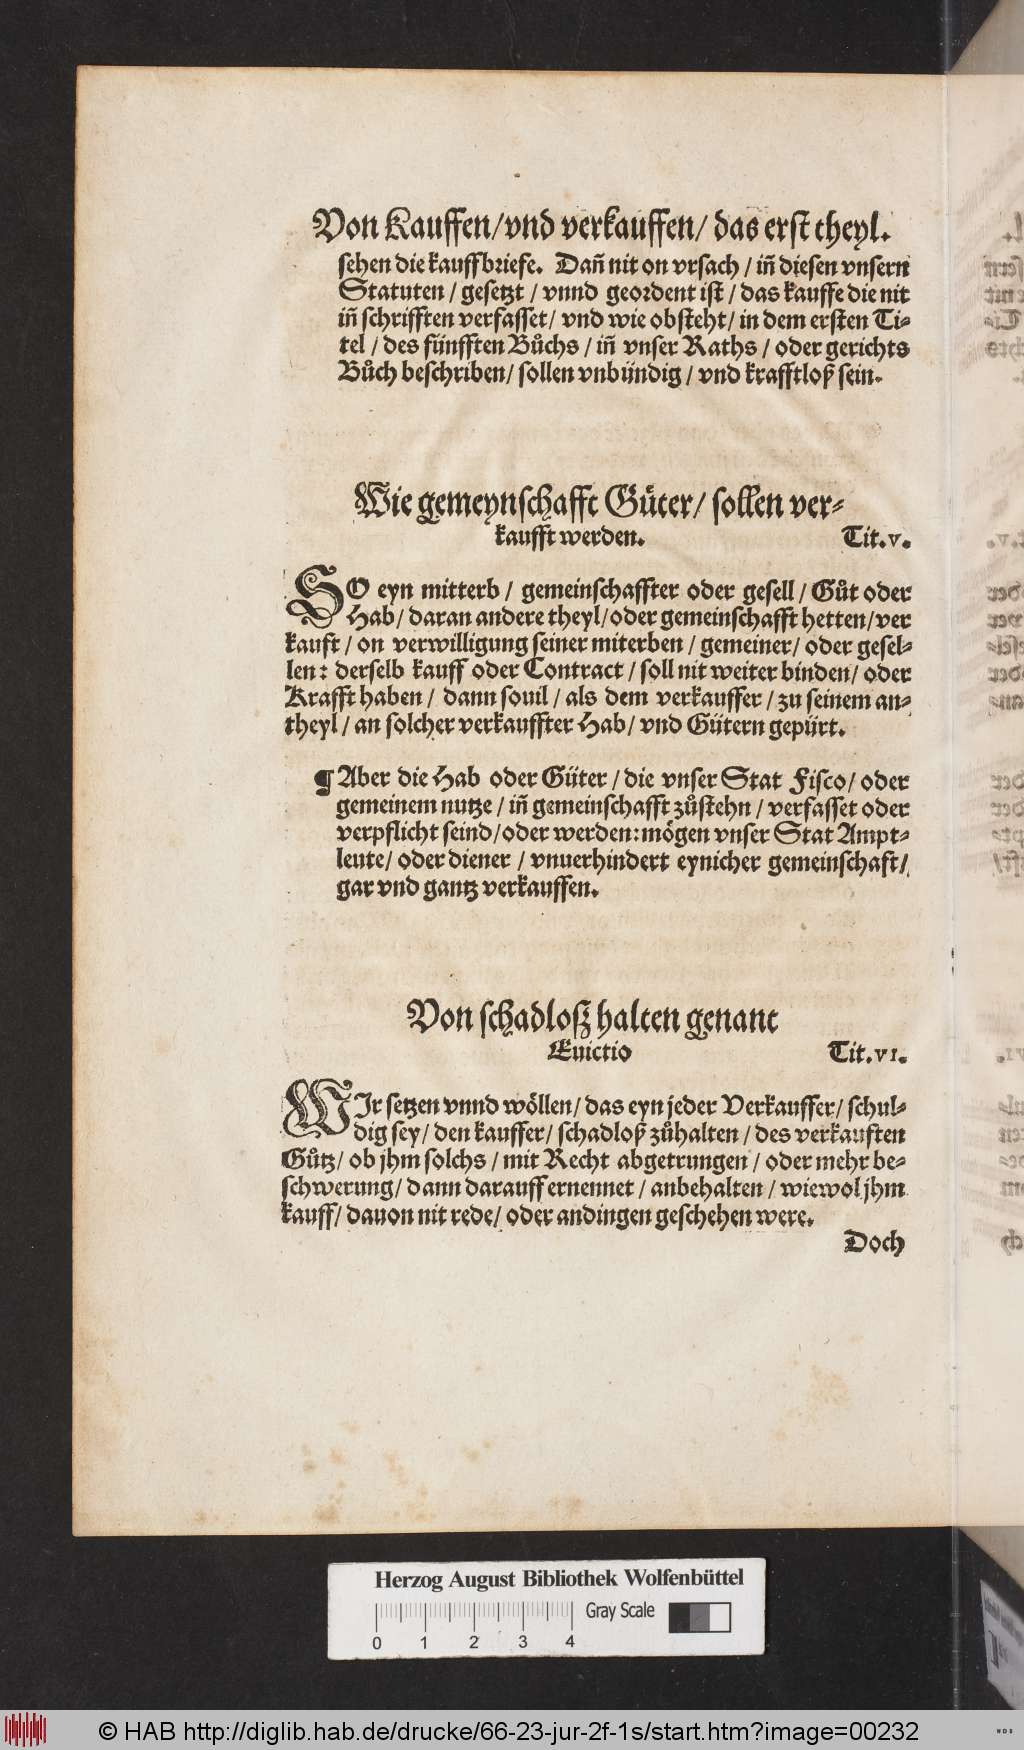 Von Kauffen/ vnd verkauffen/ das erst theyl.
sehen die kauffbriefe. Dañ nit on vrsach / iñ diesen vnsern
Statuten / gesetzt / vnnd geordent ist / das kauffe die nit
iñ schrifften verfasset/ vnd wie obsteht/ in dem ersten Ti-
tel / des fünfften Bůchs / iñ vnser Raths / oder gerichts
Bůch beschriben/ sollen vnbündig / vnd krafftloß sein.
Wie gemeynschafft Güter/ sollen ver-
kaufft werden. Tit.v.
SO eyn mitterb / gemeinschaffter oder gesell / Gůt oder
Hab/ daran andere theyl/oder gemeinschafft hetten/ver
kauft/ on verwilligung seiner miterben / gemeiner/ oder gesel-
len: derselb kauff oder Contract / soll nit weiter binden/ oder
Krafft haben / dann souil / als dem verkauffer / zu seinem an-
theyl / an solcher verkauffter Hab/ vnd Gütern gepürt.
¶ Aber die Hab oder Güter / die vnser Stat Fisco/ oder
gemeinem nutze / iñ gemeinschafft zůstehn / verfasset oder
verpflicht seind/oder werden: mögen vnser Stat Ampt-
leute/ oder diener / vnuerhindert eynicher gemeinschaft/
gar vnd gantz verkauffen.
Von schadloß halten genant
Euictio Tit.vi.
WIr setzen vnnd wöllen/ das eyn jeder Verkauffer/ schul-
dig sey/ den kauffer/ schadloß zůhalten / des verkauften
Gůtz/ ob jhm solchs / mit Recht abgetrungen / oder mehr be-
schwerung/ dann darauff ernennet / anbehalten / wiewol jhm
kauff/ dauon nit rede/ oder andingen geschehen were.
Doch
Herzog August Bibliothek Wolfenbüttel
Gray Scale
0 1 2 3 4
© HAB http://diglib.hab.de/drucke/66-23-jur-2f-1s/start.htm?image=00232